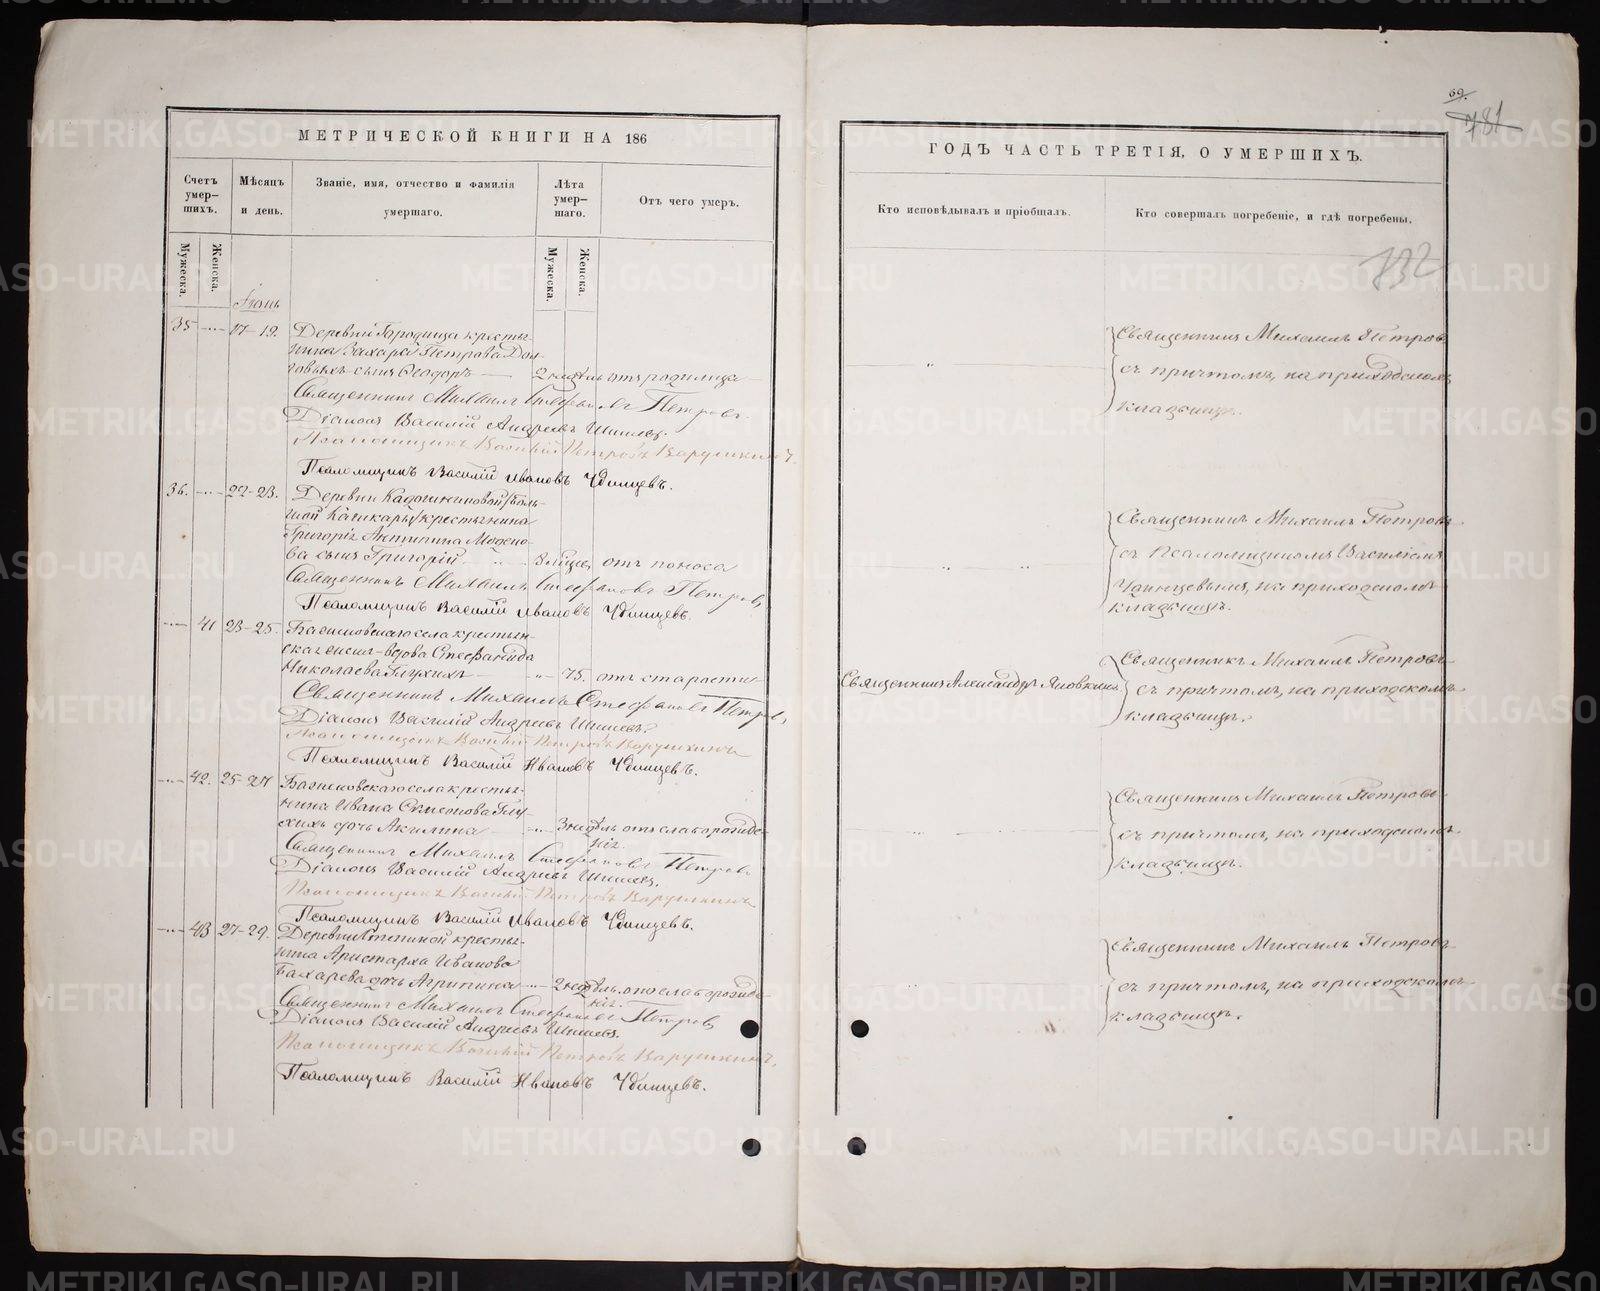 МЕТРИЧЕСКОЙ КНИГИ НА 186
Счетъ умер-шихъ.
Мѣсяцъ и день.
Званіе, имя, отчество и фамилія умершаго.
Лѣта умер-шаго.
Отъ чего умеръ.
Мужеска.
Женска.
Мужеска.
Женска.
Іюнь
35 17-19. Деревни Городища кресть-
янина Захара Петрова Дол-
говыхъ сынъ Ѳеодоръ 2 недѣль отъ родимца
Священникъ Михаилъ Стефановъ Петровъ.
Діаконъ Василій Андреевъ Шишевъ.
Псаломщикъ Василій Петровъ Варушкинъ.
Псаломщикъ Василій Ивановъ Удинцевъ.
36. 22-23. Деревни
крестьянина
Григорія Антипина
сынъ Григорій отъ поноса
Священникъ Михаилъ Стефановъ Петровъ
Псаломщикъ Василій Ивановъ Удинцевъ.
41 23-25. села крестьян-
вдова Стефанида
Николаева Глухихъ 75. отъ старости
Священникъ Михаилъ Стефановъ Петровъ,
Діаконъ Василій Андреевъ Шишевъ.
Псаломщикъ Василій Петровъ Варушкинъ
Псаломщикъ Василій Ивановъ Удинцевъ.
42. 25-27 села кресть-
янина Ивана Глу-
хихъ дочь Акилина 3 недѣль отъ слаборожде-
нія.
Священникъ Михаилъ Стефановъ Петровъ
Діаконъ Василій Андреевъ Шишевъ.
Псаломщикъ Василій Петровъ Варушкинъ
Псаломщикъ Василій Ивановъ Удинцевъ.
43 27-29. Деревни кресть-
янина Аристарха Иванова
Бахарева дочь Агрипина 2 недѣль. отъ слаборожде-
нія.
Священникъ Михаилъ Стефановъ Петровъ
Діаконъ Василій Андреевъ Шишевъ.
Псаломщикъ Василій Петровъ Варушкинъ,
Псаломщикъ Василій Ивановъ Удинцевъ.
69.
781
ГОДЪ ЧАСТЬ ТРЕТІЯ, О УМЕРШИХЪ.
Кто исповѣдывалъ и пріобщалъ.
Кто совершалъ погребеніе, и гдѣ погребены.
732
Священникъ Михаилъ Петровъ
съ причтомъ, на приходскомъ
кладбищѣ.
Священникъ Михаилъ Петровъ
съ Псаломщикомъ Василіемъ
Удинцевымъ, на приходскомъ
кладбищѣ.
Священникъ Александръ Яновкинъ
Священникъ Михаилъ Петровъ
съ причтомъ, на приходскомъ
кладбищѣ.
Священникъ Михаилъ Петровъ
съ причтомъ, на приходскомъ
кладбищѣ.
Священникъ Михаилъ Петровъ
съ причтомъ, на приходскомъ
кладбищѣ.
METRIKI.GASO-URAL.RU